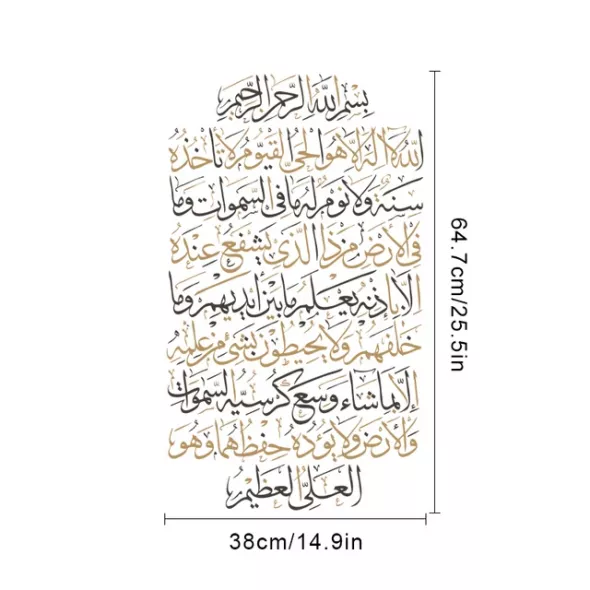 بسم الله الرحمن الرحيم
الله لا إله إلا هو الحي القيوم لا تأخذه
سنة ولا نوم له ما في السموات وما
في الأرض من ذا الذي يشفع عنده
إلا بإذنه يعلم ما بين أيديهم وما
خلفهم ولا يحيطون بشئ من علمه
إلا بما شاء وسع كرسيه السموات
والأرض ولا يؤده حفظهما وهو
العلي العظيم
64.7cm/25.5in
38cm/14.9in